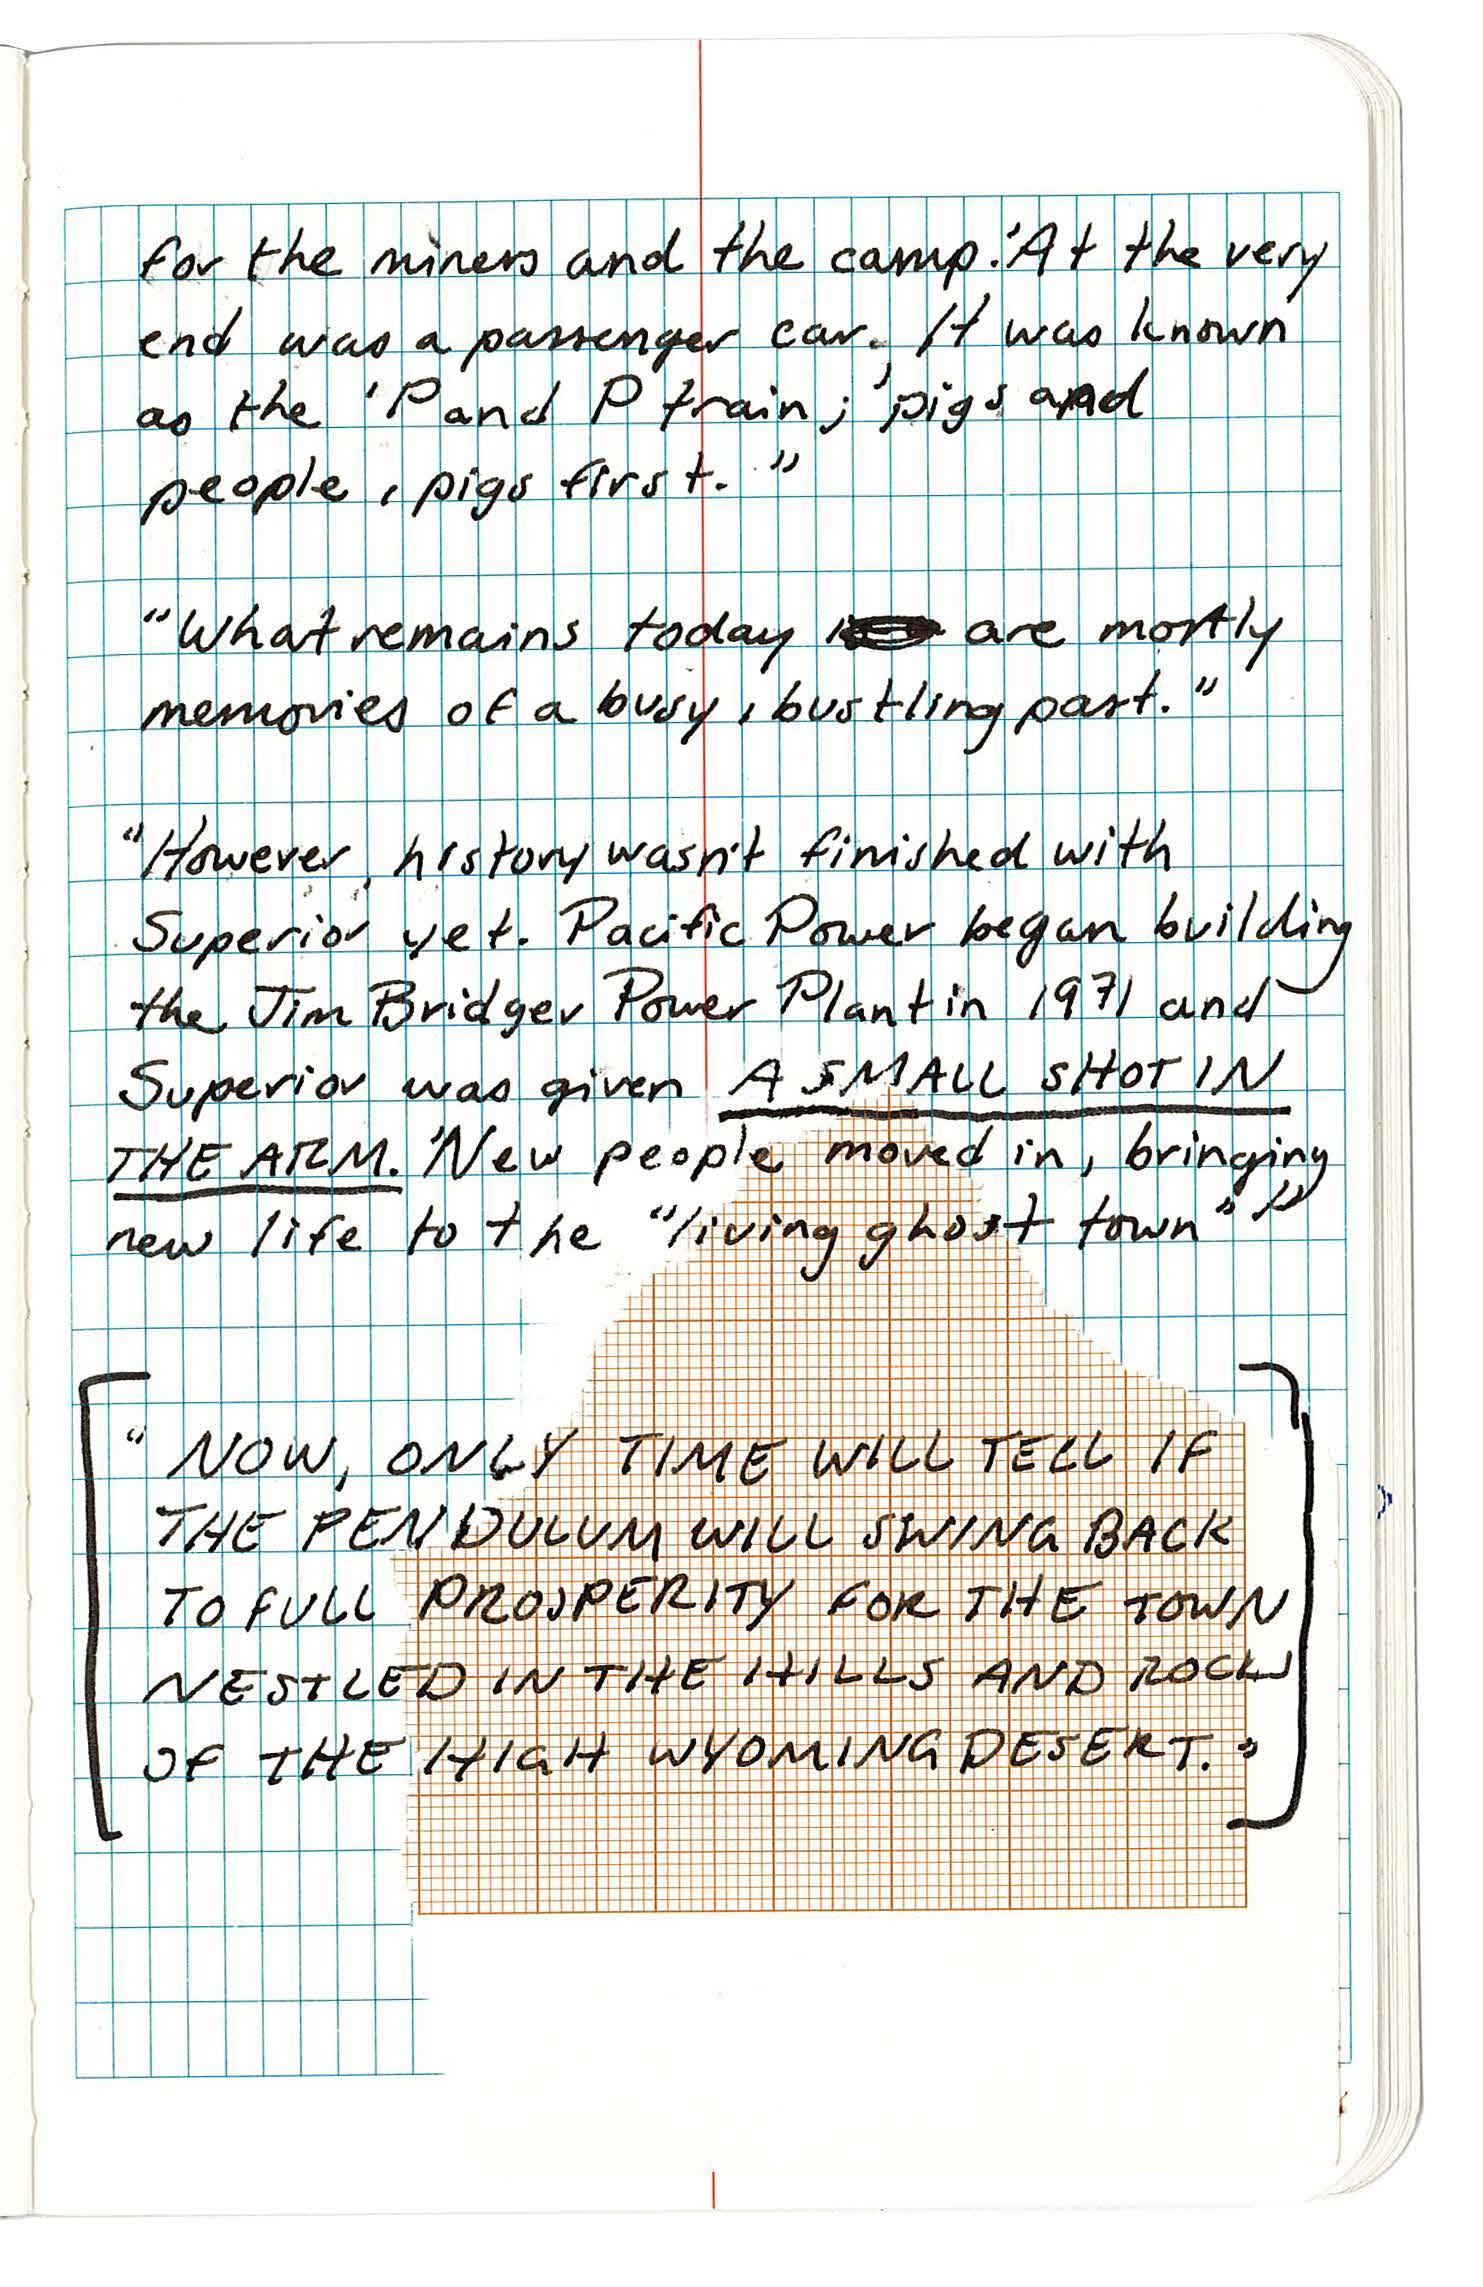 for the miners and the camp.' At the very
end was a passenger car. It was known
as the 'P and P train;' pigs and
people, pigs first."
"What remains today are mostly
memories of a busy, bustling past."
"However, history wasn't finished with
Superior yet. Pacific Power began building
the Jim Bridger Power Plant in 1971 and
Superior was given A SMALL SHOT IN
THE ARM. 'New people moved in, bringing
new life to the "living ghost town"'"
"NOW, ONLY TIME WILL TELL IF
THE PENDULUM WILL SWING BACK
TO FULL PROSPERITY FOR THE TOWN
NESTLED IN THE HILLS AND ROCKS
OF THE HIGH WYOMING DESERT."